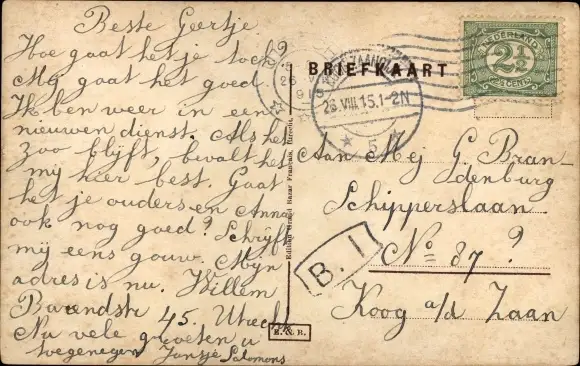 Beste Geertje
Hoe gaat het je toch?
Mij gaat het goed.
Ik ben weer in een
nieuwen dienst. Als het
zoo blijft, bevalt het
mij hier best. Gaat
het je ouders en Anna
ook nog goed? Schrijft
mij eens gouw. Mijn
adres is nu. Willem
Barendstr 45. Utrecht
Nu vele groeten u
toegenegen Jansje Salomons
Edition Grand Bazar Français, Utrecht.
B. & R.
BRIEFKAART
26 VIII 15.1-2N
5
NEDERLAND
2½
CENT
Aan Mej G. Bran-
denburg
Schipperslaan
No 87?
B. I
Koog a/d Zaan